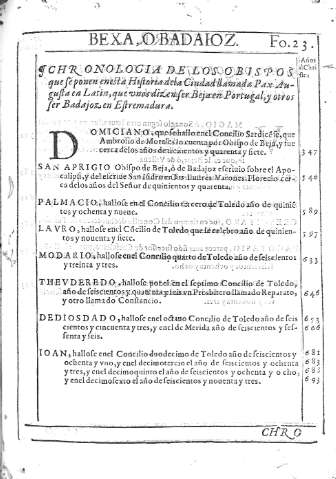 BEXA, O BADAIOZ.
Fo. 23.
Años
¶ CHRONOLOGIA DE LOS OBISPOS
que se ponen en esta Historia de la Ciudad llamada Pax Au-
gusta en Latin, que unos dizen ser Beja en Portugal, y otros
ser Badajoz, en Estremadura.
DOMICIANO, que se hallo en el Concilio Sardicése, que
Ambrosio de Morales lo cuenta por Obispo de Beja, y fue
cerca de los años de trecientos y quarenta y siete. 347
SAN APRIGIO Obispo de Beja, ó de Badajoz escriuio sobre el Apo-
calipsi, y del escriue San Isidro en sus Ilustres Varones. Florecio cer-
co de los años del Señor de quinientos y quarenta. 540
PALMACIO, hallose en el Concilio tercero de Toledo año de quinié-
tos y ochenta y nueue. 589
LAVRO, hallose en el Cócilio de Toledo que se celebro año de quinien-
tos y nouenta y siete. 597
MODARIO, hallose en el Concilio quarto de Toledo año de seiscientos
y treinta y tres. 633
THEVDEREDO, hallose por el en el septimo Concilio de Toledo,
año de seiscientos y quarenta y seis vn Presbitero llamado Reparato,
y otro llamado Constancio. 646
DEDIOSDADO, hallose en el octauo Concilio de Toledo año de seis
cientos y cincuenta y tres, y en el de Merida año de seiscientos y se-
senta y seis. 653
666
IOAN, hallose en el Concilio duodecimo de Toledo año de seiscientos y
ochenta y vno, y en el decimotercio año de seiscientos y ochenta
y tres, y en el decimoquinto el año de seiscientos y ochenta y ocho,
y en el decimosexto el año de seiscientos y nouenta y tres. 681
683
693
CHRO